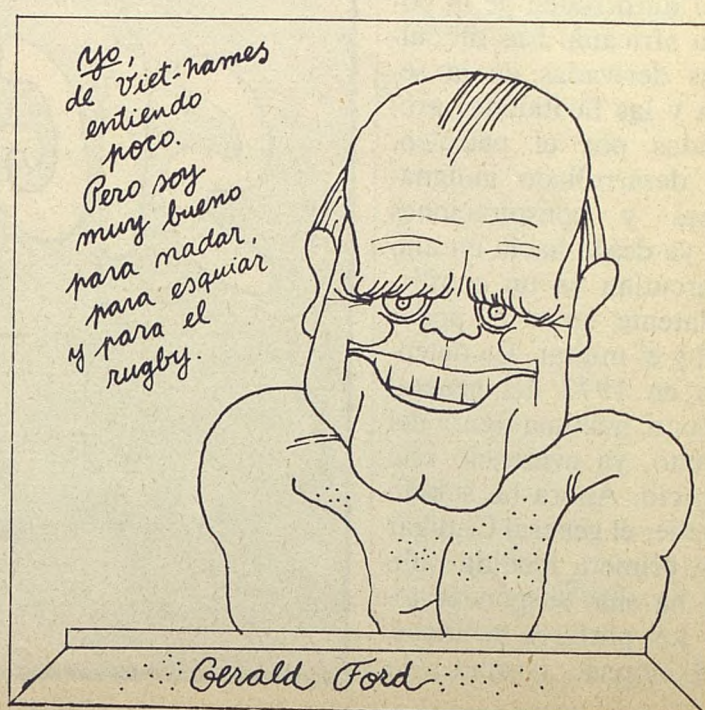 Yo,
de Viet-names
entiendo
poco.
Pero soy
muy bueno
para nadar,
para esquiar
y para el
rugby.
Gerald Ford